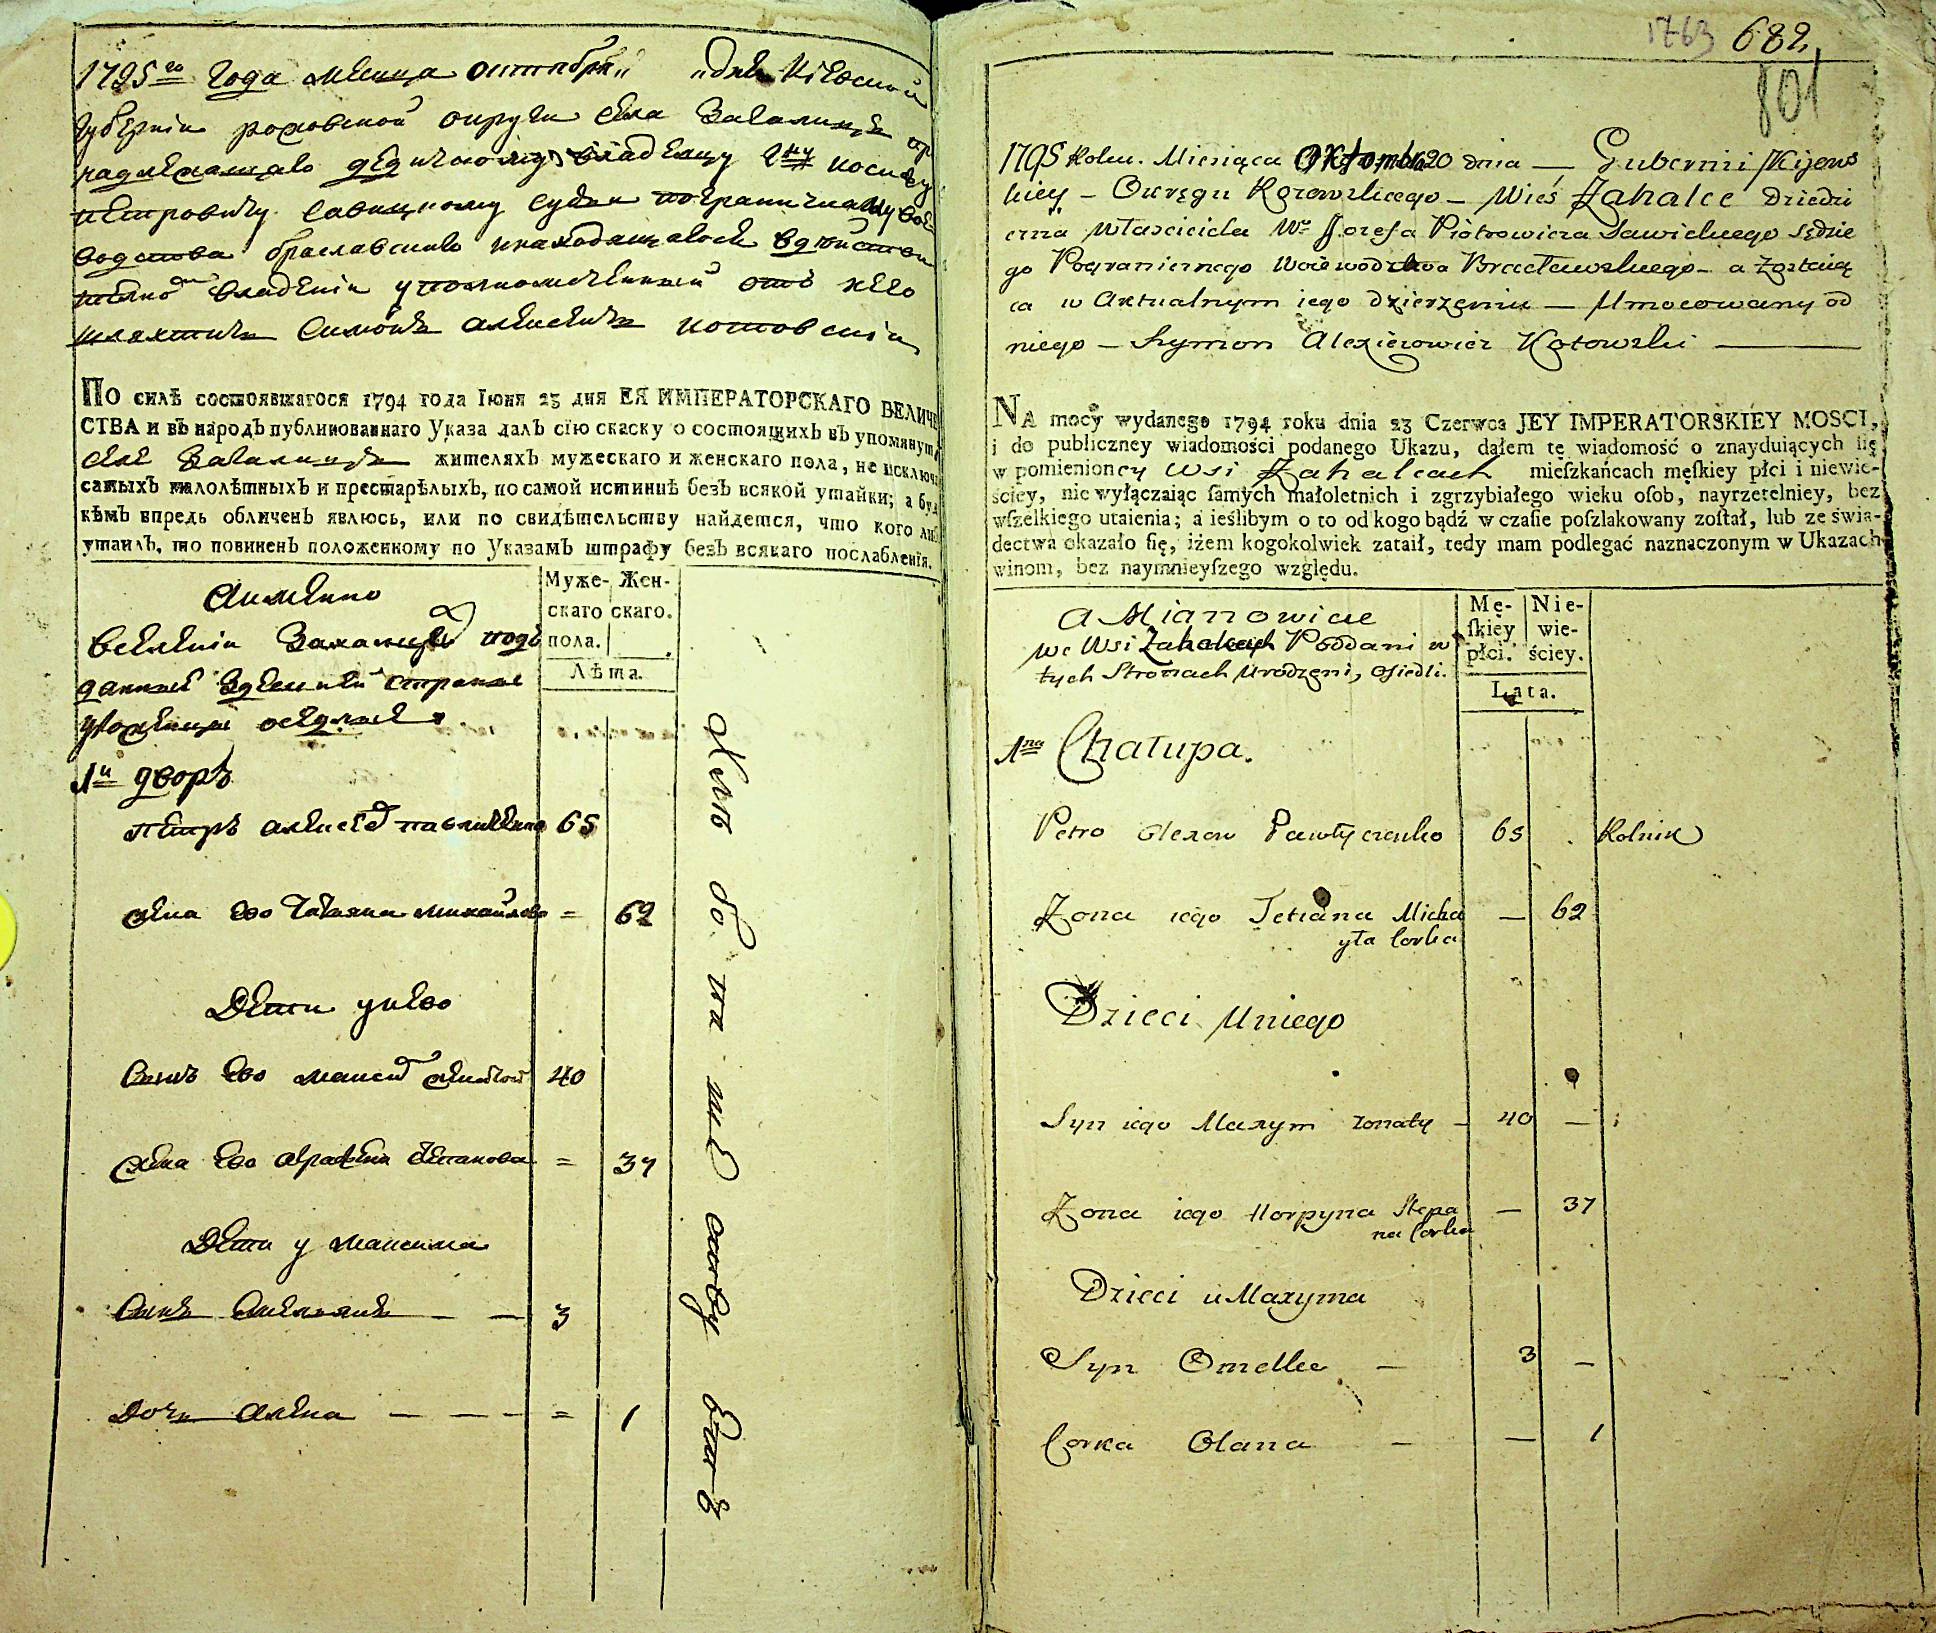 1795го года месяца октября " " дня Кіевской
губерніи роховской округи села Закалицъ при
надлежащаго дедичному владелцу Гну иосифу
петровичу савицкому судьи пограничному вое
водства браславскаго инаходящагося вдействи
телномъ владеніи уполномоченный отъ него
шляхтичъ Симонъ алексеевичъ котовскій
ПО силѣ состоявшагося 1794 года Іюня 23 дня ЕЯ ИМПЕРАТОРСКАГО ВЕЛИЧЕ
СТВА и въ народъ публикованнаго Указа далъ сію скаску о состоящихъ въ упомянут
селе жителяхъ мужескаго и женскаго пола, не исключа
самыхъ малолѣтныхъ и престарѣлыхъ, по самой истиннѣ безъ всякой утайки; а буд
кѣмъ впредь обличенъ явлюсь, или по свидѣтельству найдется, что кого либ
утаилъ, то повиненъ положенному по Указамъ штрафу безъ всякаго послабленія.
Аименно
подъ
данные вдешней стране
урожени оседлые
Муже- Жен-
скаго скаго.
пола.
Лѣта.
1й дворъ
петръ алексеевъ павличенко 65
жена ево Татьяна михайлова = 62
Дети унево
Сынъ ево максимъ женатой 40
жена ево аграфена степанова = 37
Дети у максима
Сынъ Омельянъ — — 3
Дочь алена — — — = 1
1763 682
801
1795 Roku. Miesiąca Oktombra 20 dnia — Gubernii Kijows
kiey – Okręgu Rozowskiego – Wieś Zahalce Dziedzi
czna Właściciela Wo Jozefa Piotrowicza Sawickiego Sędzie
go Pogranicznego Woiewodztwa Bracławskiego – a Zostaiąca
ca w Aktualnym iego dzierżeniu — Umocowany od
niego — Szymon Alexieiowicz Kotowski
NA mocy wydanego 1794 roku dnia 23 Czerwca JEY IMPERATORSKIEY MOSCI,
i do publiczney wiadomości podanego Ukazu, dałem tę wiadomość o znayduiących ſię
w pomienioney wsi Zahalcach mieſzkańcach męſkiey płci i niewie-
ściey, nie wyłączaiąc ſamych małoletnich i zgrzybiałego wieku oſob, nayrzetelniey, bez
wſzelkiego utaienia; a ieślibym o to od kogo bądź w czaſie poſzlakowany zoſtał, lub ze świa-
dectwa okazało ſię, iżem kogokolwiek zataił, tedy mam podlegać naznaczonym w Ukazach
winom, bez naymnieyſzego względu.
A Mianowicie
we Wsi Zahalcach Poddani w
tych Stronach Urodzeni, Osiedli.
Mę- Nie-
ſkiey wie-
płci. ściey.
Lata.
1na Chałupa.
Petro Olexow Pawłyczenko 65 Rolnik
Żona iego Tetiana Micha — 62
yła Corka
Dzieci Uniego
Syn iego Maxym żonaty – 40 —
Żona iego Horpyna Stepa — 37
na Corka
Dzieci u Maxyma
Syn Omelko — 3 —
Corka Olana — — 1